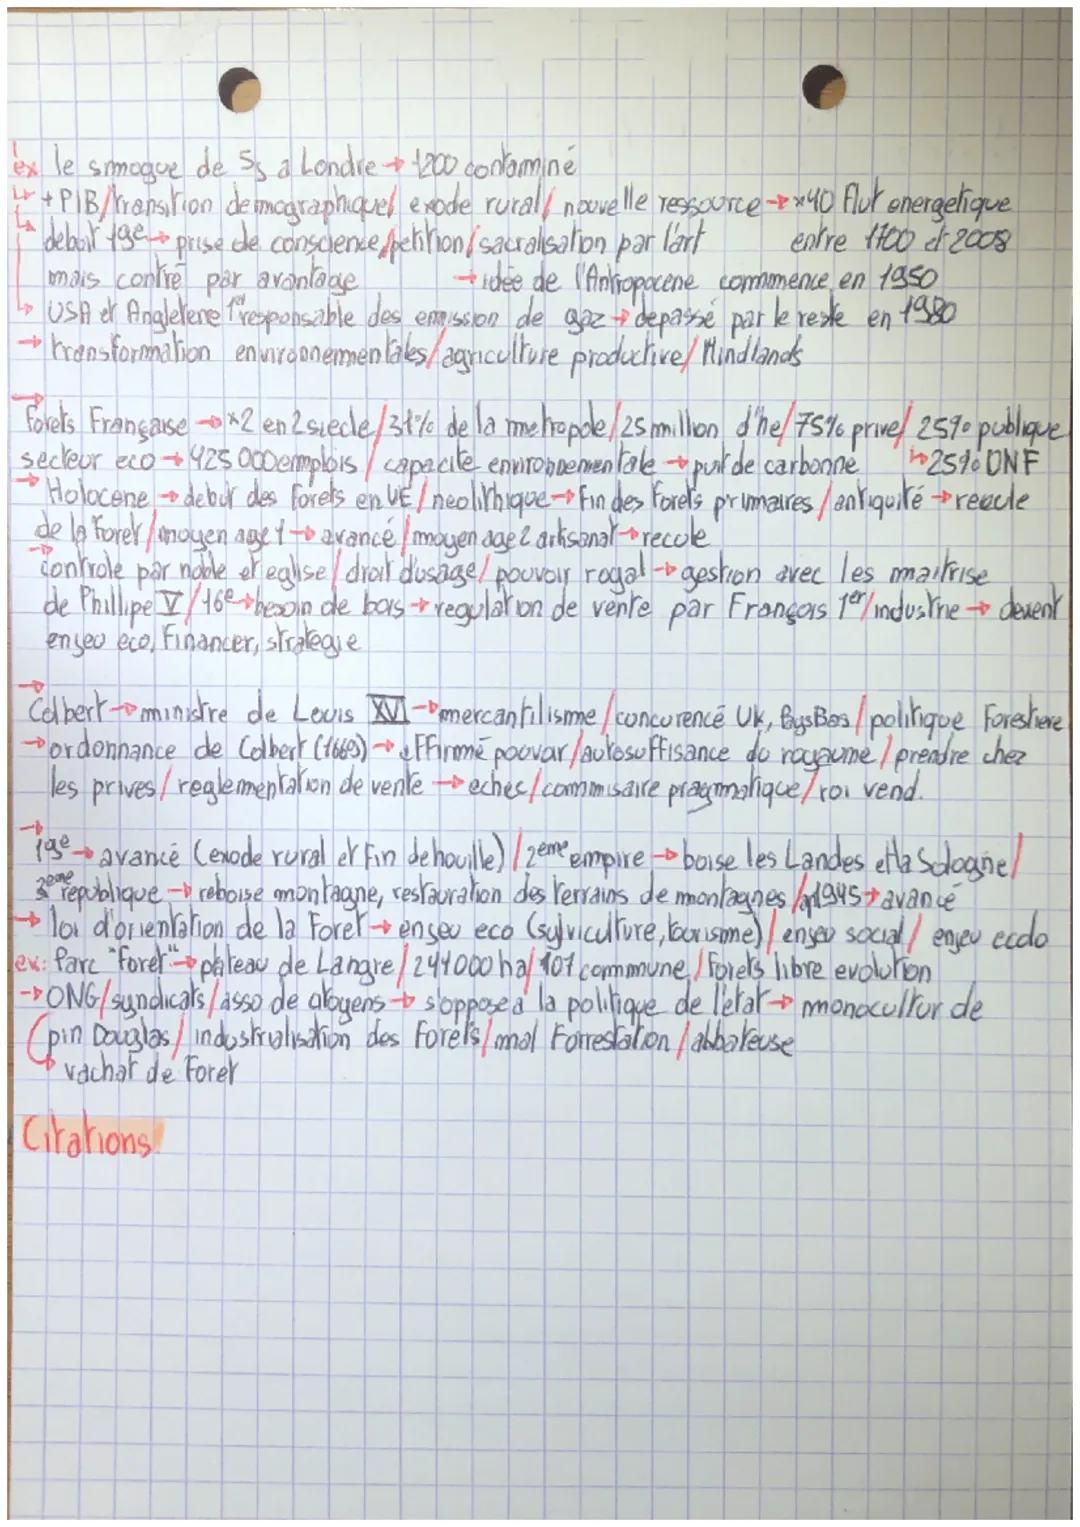 ex le smogue de 5s a Londre → 1200 contaminé
↳ + PIB/transition demographique/ exode rural/ nouvelle ressource → x40 flut energetique
↳ debut 19e → prise de conscience/petition/sacralisation par l'art entre 1700 et 2008
mais contré par avantage → idée de l'Antropocene commence en 1950
↳ USA et Angletene 1er responsable des emission de gaz → depassé par le reste en 1980
→ transformation environnementales/agriculture productive/ Mindlands
→
Forets Française → x2 en 2 siecle/31% de la metropole/25 million d'he/75% prive/ 25% publique
secteur eco → 425 000 emplois / capacite environnementale → puit de carbonne ↳ 25% ONF
→ Holocene → debut des forets en UE/neolithique → Fin des forets primaires/antiquité → recule
de la foret/moyen age 1 → avancé/moyen age 2 artisanat → recule
→ controle par noble et eglise/droit d'usage/ pouvoir royal → gestion avec les maitrise
de Phillipe V/16e → besoin de bois → regulation de vente par François 1er/industrie → devent
enjeu eco, Financer, strategie
→
Colbert → ministre de Louis XVI → mercantilisme/concurencé UK, PaysBas/politique Forestiere
→ ordonnance de Colbert (1669) → affirmé pouvoir/autosuffisance du royaume/prendre chez
les prives/reglementation de vente → echec/commisaire pragmatique/roi vend.
→
19e → avancé (exode rural et fin de houille)/2eme empire → boise les Landes et la Sologne/
3eme republique → reboise montagne, restauration des terrains de montagnes/ap1945 → avancé
→ loi d'orientation de la foret → enjeu eco (sylviculture, tourisme)/enjeu social/ enjeu ecolo
ex: Parc "foret" → plateau de Langre/241000 ha/107 commune/Forets libre evolution
→ ONG/syndicats/asso de citoyens → s'oppose a la politique de l'etat → monocultur de
pin Douglas/ industrialisation des forets/mal Forrestation/abbateuse
↳ rachat de foret
Citations!